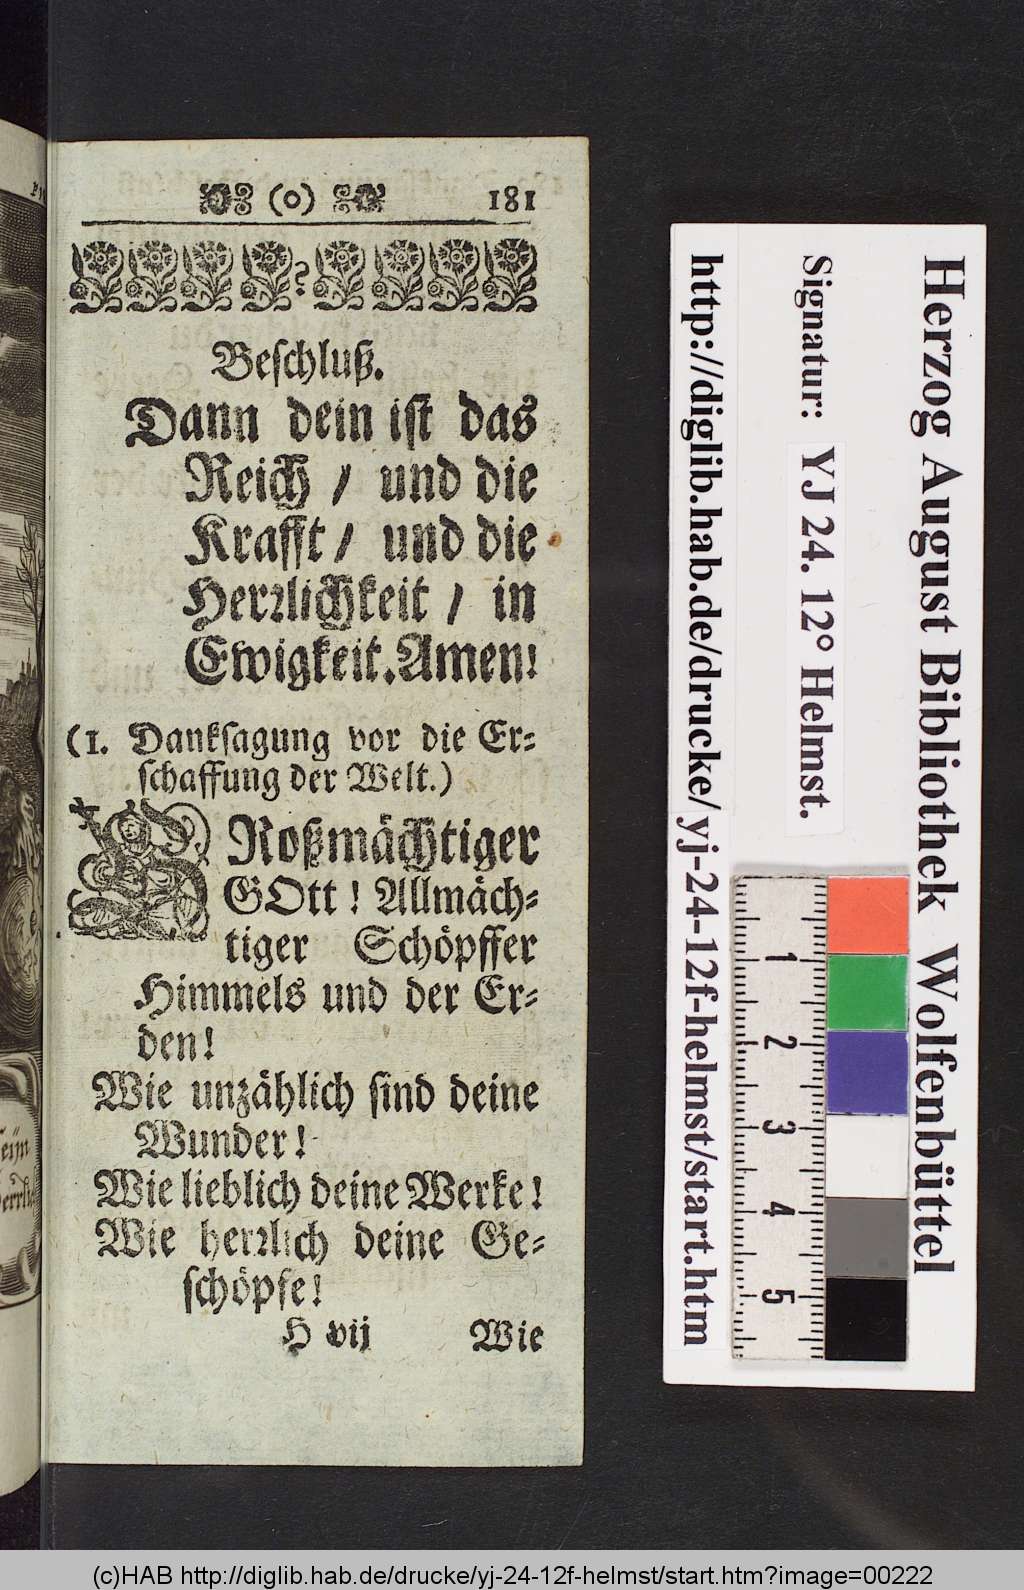 (o) 181
Beſchluß.
Dann dein iſt das
Reich / und die
Krafft / und die
Herꝛlichkeit / in
Ewigkeit. Amen!
(1. Dankſagung vor die Er⸗
ſchaffung der Welt.)
GRoßmächtiger
GOtt! Allmäch⸗
tiger Schöpffer
Himmels und der Er⸗
den!
Wie unzählich ſind deine
Wunder!
Wie lieblich deine Werke!
Wie herꝛlich deine Ge⸗
ſchöpfe!
H vij Wie
Herzog August Bibliothek Wolfenbüttel
Signatur: YJ 24. 12° Helmst.
http://diglib.hab.de/drucke/yj-24-12f-helmst/start.htm
1
2
3
4
5
(c)HAB http://diglib.hab.de/drucke/yj-24-12f-helmst/start.htm?image=00222